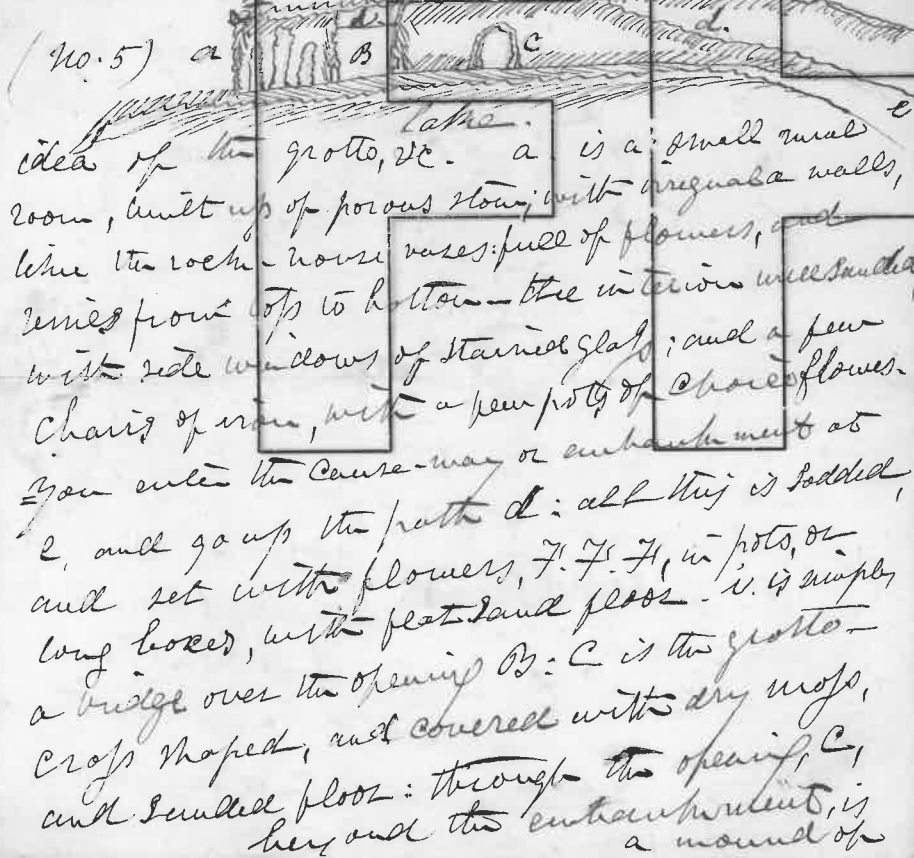 d. d.
(No. 5) a B C e
lake.
idea of the grotto, &c. a is a small rural
room, built up of porous stone, with irregular walls,
like the rock-house vases: full of flowers, and
from top to bottom - the interior well sanded,
with side windows of stained glass; and a few
chairs of iron, with a few pots of choice flowers.
=You enter the cause-way or embankment at
e, and go up the path d: all this is sodded,
and set with flowers, F. F. F, in pots, or
long boxes, with flat sand floor - is simply
a bridge over the opening B: C is the grotto -
cross shaped, and covered with dry moss,
and sanded floor: through the opening, C,
beyond the embankment, is
a mound of